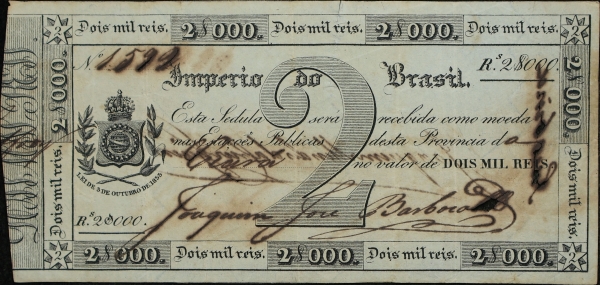 Dois mil reis. 2$000. Dois mil reis. 2$000. Dois mil reis.
Nº 1592 Rs 2$000.
Imperio do Brasil.
Esta Sedula será recebida como moeda
nas Estações Publicas desta Provincia do
Ceará no valor de DOIS MIL REIS.
2
LEI DE 3 DE OUTUBRO DE 1833
Rs 2$000.
Joaquim José Barbosa
2$000. Dois mil reis. 2$000. Dois mil reis. 2$000.
Dois mil reis. 2$000.
2$000. Dois mil reis.